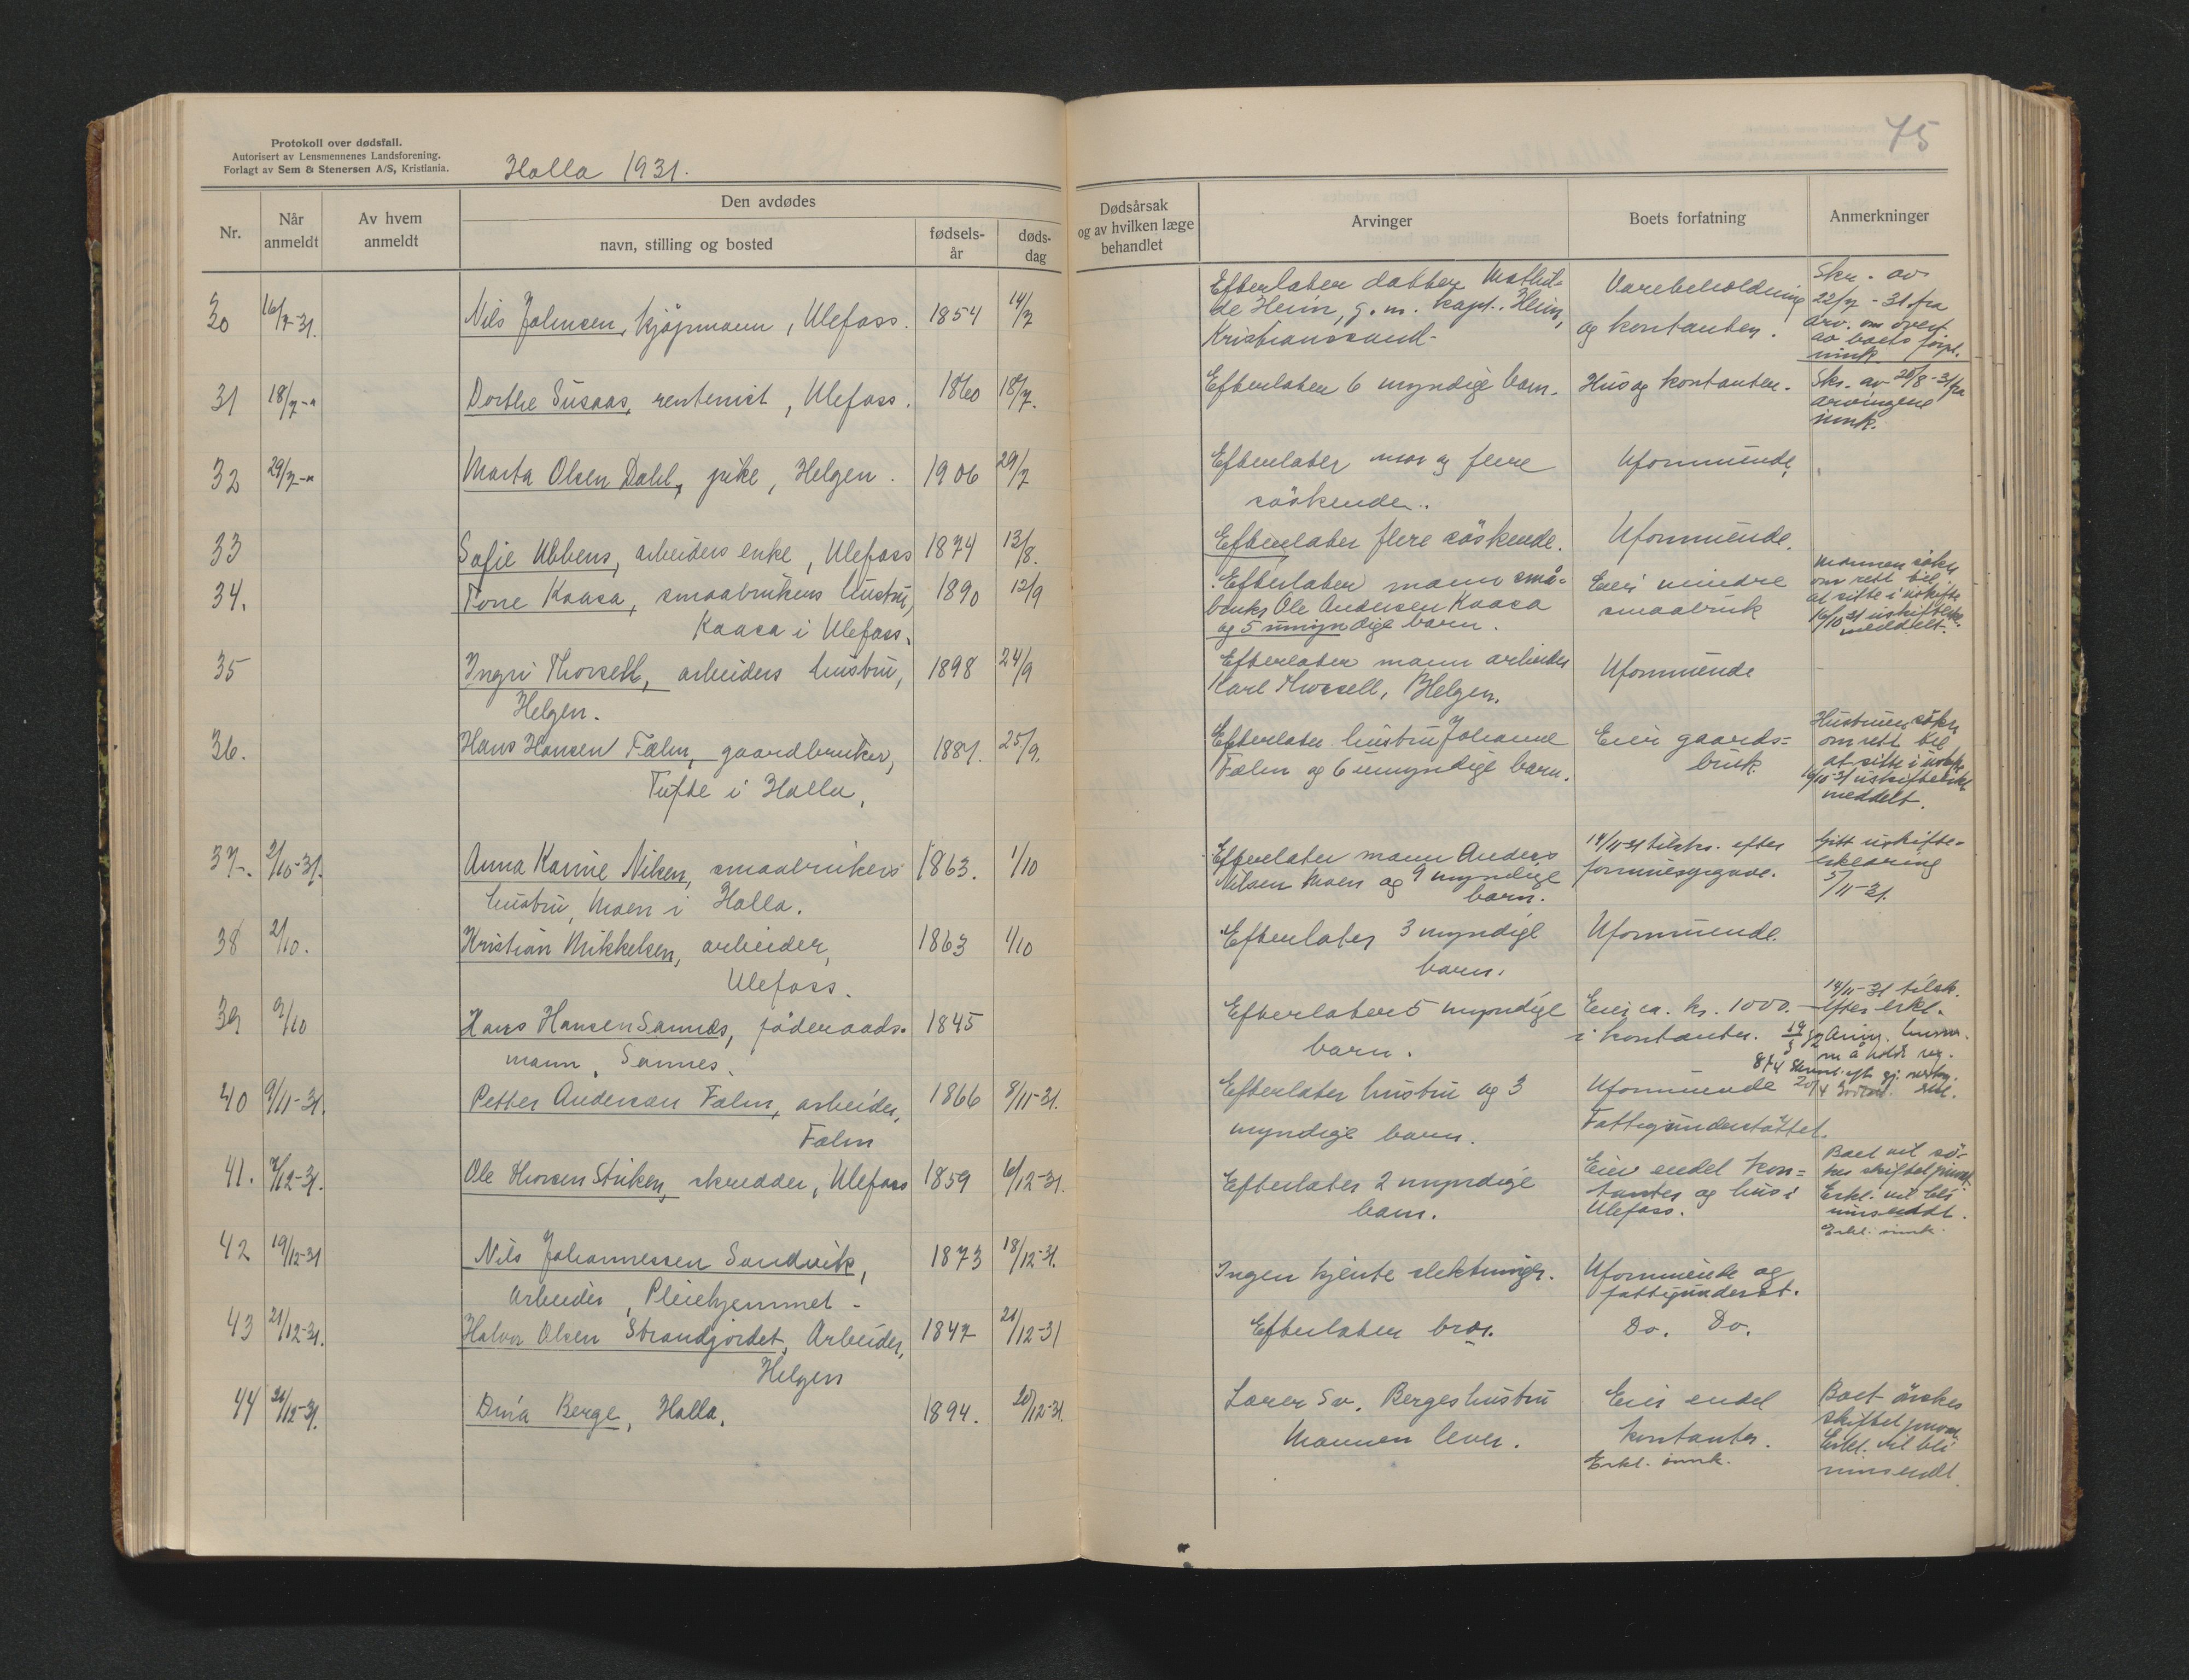 Protokoll over dødsfall.
Autorisert av Lensmennenes Landsforening.
Forlagt av Sem & Stenersen A/S, Kristiania.
Holla 1931.
75
Nr.
Når anmeldt
Av hvem anmeldt
Den avdødes
navn, stilling og bosted
fødsels-år
døds-dag
Dødsårsak og av hvilken læge behandlet
Arvinger
Boets forfatning
Anmerkninger
30 16/7-31. Nils Johnsen, kjöpmann, Ulefoss. 1854 14/7
Efterlater datter Mathil-
de Heim, g. m. kapt. Heim,
Kristianssand-
Varebeholdning
og kontanter.
Skr. av
22/7-31 fra
arv. om overt.
av boets forpl.
innk.
31 18/7-" Dorthe Susaas, rentenist, Ulefoss. 1860 18/7.
Efterlater 6 myndige barn. Hus og kontanter.
Skr. av 20/8-31 fra
arvingene
innk.
32 29/7-" Marta Olsen Dahl, pike, Helgen. 1906 29/7
Efterlater mor og flere
söskende.
Uformuende.
33 Sofie Ubbens, arbeiders enke, Ulefoss 1874 13/8.
Efterlater flere söskende. Uformuende.
34. Tone Kaasa, smaabrukers hustru, 1890 12/9
Kaasa i Ulefoss.
Efterlater mann små-
bruker Ole Andersen Kaasa
og 5 umyndige barn.
Eier mindre
smaabruk
Mannen söker
om rett til
at sitte i uskifte
16/10 31 uskifteerkl.
meddelt.
35 Ingri Thorsell, arbeiders hustru, 1898 24/9
Helgen.
Efterlater mann arbeider
Karl Thorsell, Helgen.
Uformuende
36. Hans Hansen Fælm, gaardbruker, 1887. 25/9.
Tufte i Holla,
Efterlater hustru Johanne
Fælm og 6 umyndige barn.
Eier gaards-
bruk.
Hustruen söker
om rett til
at sitte i uskifte
16/10-31 uskifteerkl.
meddelt.
37. 2/10-31. Anna Karine Nilsen, smaabrukers 1863. 1/10
hustru, Moen i Holla.
Efterlater mann Anders
Nilsen Moen og 9 myndige
barn.
14/11-31 tilskr. efter
formuesopgave.
Gitt uskifte-
erklæring
5/11-31.
38 2/10. Kristian Mikkelsen, arbeider, 1863 1/10
Ulefoss.
Efterlater 3 myndige
barn.
Uformuende.
39 9/10 Hans Hansen Sannes, föderaads- 1845
mann, Sannes.
Efterlater 5 myndige
barn.
Eier ca. kr. 1000.-
i kontanter.
14/11-31 tilsk.
efter erkl.
40 9/11-31. Petter Anderssen Fælm, arbeider, 1866 8/11-31.
Fælm
Efterlater hustru og 3
myndige barn.
Uformuende
Fattigunderstöttet.
41. 7/12-31. Ole Thorsen Striken, skredder, Ulefoss 1859 6/12-31.
Efterlater 2 myndige
barn.
Eier endel kon-
tanter og hus i
Ulefoss.
Boet vil sö-
kes skiftet privat
Erkl. vil bli
innsendt.
Erkl. innk.
42 19/12-31 Nils Johannessen Sandvik, 1873 18/12-31.
Arbeider, Pleiehjemmet-
Ingen kjente slektninger.
Uformuende og
fattigunderst.
43 21/12-31. Halvor Olsen Strandjordet, Arbeider, 1847 21/12-31
Helgen
Efterlater bror.
Do. Do.
44 21/12-31. Dina Berge, Holla. 1894. 20/12-31.
Lærer Sv. Berges hustru
Mannen lever.
Eier endel
kontanter.
Erkl. innk.
Boet önskes
skiftet privat
Erkl. vil bli
innsendt